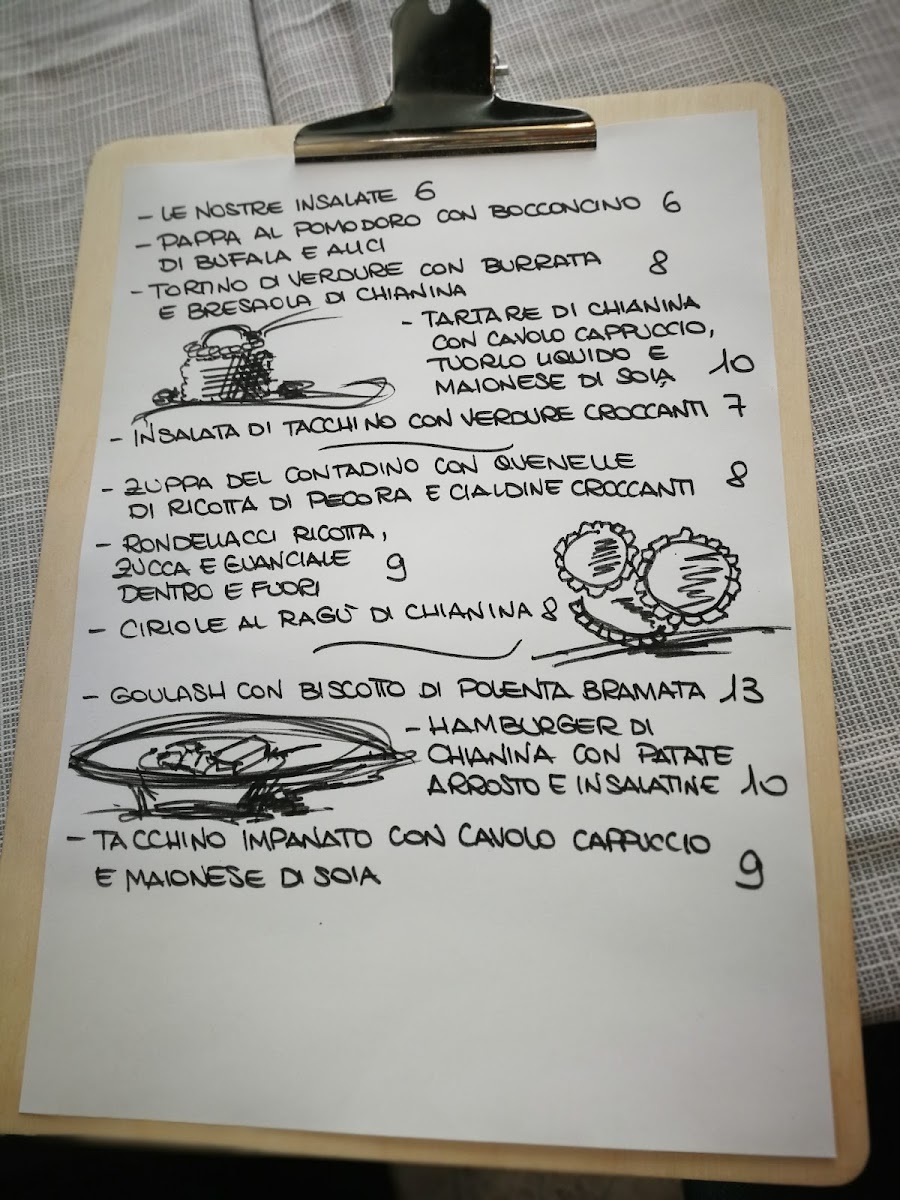 - LE NOSTRE INSALATE 6
- PAPPA AL POMODORO CON BOCCONCINO 6
DI BUFALA E ALICI
- TORTINO DI VERDURE CON BURRATA 8
E BRESAOLA DI CHIANINA
- TARTARE DI CHIANINA
CON CAVOLO CAPPUCCIO,
TUORLO LIQUIDO E
MAIONESE DI SOIA 10
- INSALATA DI TACCHINO CON VERDURE CROCCANTI 7
- ZUPPA DEL CONTADINO CON QUENELLE
DI RICOTTA DI PECORA E CIALDINE CROCCANTI 8
- RONDELLACCI RICOTTA,
ZUCCA E GUANCIALE 9
DENTRO E FUORI
- CIRIOLE AL RAGÙ DI CHIANINA 8
- GOULASH CON BISCOTTO DI POLENTA BRAMATA 13
- HAMBURGER DI
CHIANINA CON PATATE
ARROSTO E INSALATINE 10
- TACCHINO IMPANATO CON CAVOLO CAPPUCCIO
E MAIONESE DI SOIA 9